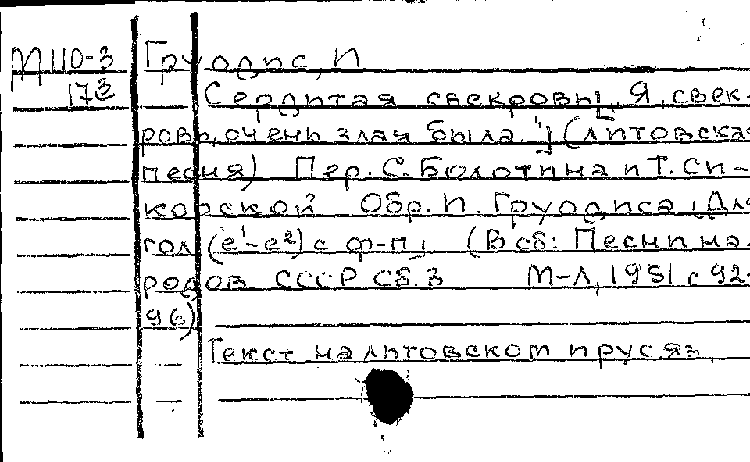 М110-3 Груодис, И
173 Сердитая свекровь [„Я, свек-
ровь, очень злая была"] (литовская
песня) Пер. С. Болотина и Т. Си-
корской Обр. И. Груодиса [Для
гол (е¹-е²) с ф-п] (В сб: Песни на-
родов СССР Сб. 3 М-Л, 1951 с 92-
96)
Текст на литовском и рус яз